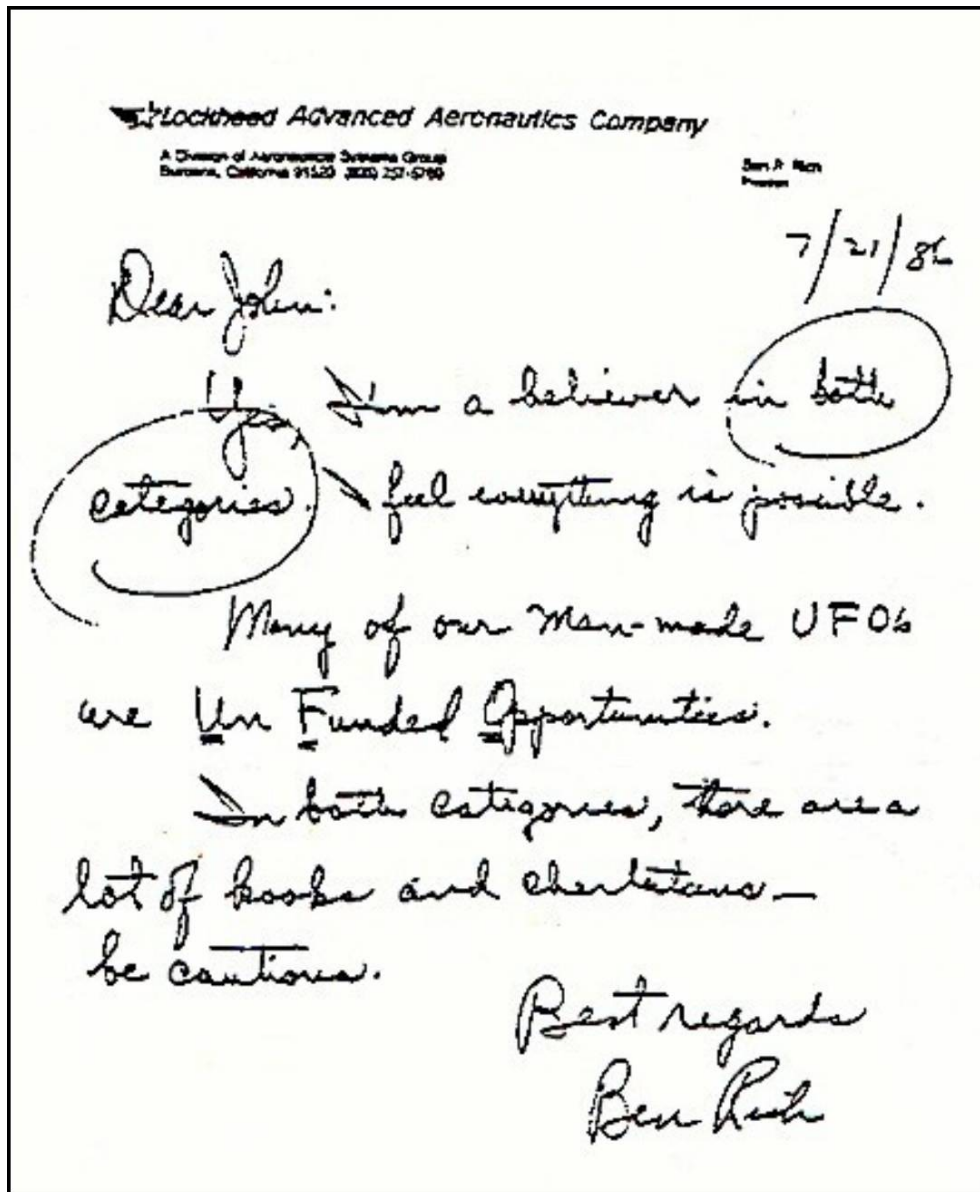 Lockheed Advanced Aeronautics Company
A Division of Aeronautical Systems Group
Burbank, California 91520
Ben R. Rich
President
7/21/86
Dear John:
Yes, I'm a believer in both
categories. I feel everything is possible.
Many of our Man-made UFO's
are Un Funded Opportunities.
In both categories, there are a
lot of kooks and charlatans —
be cautious.
Best regards
Ben Rich